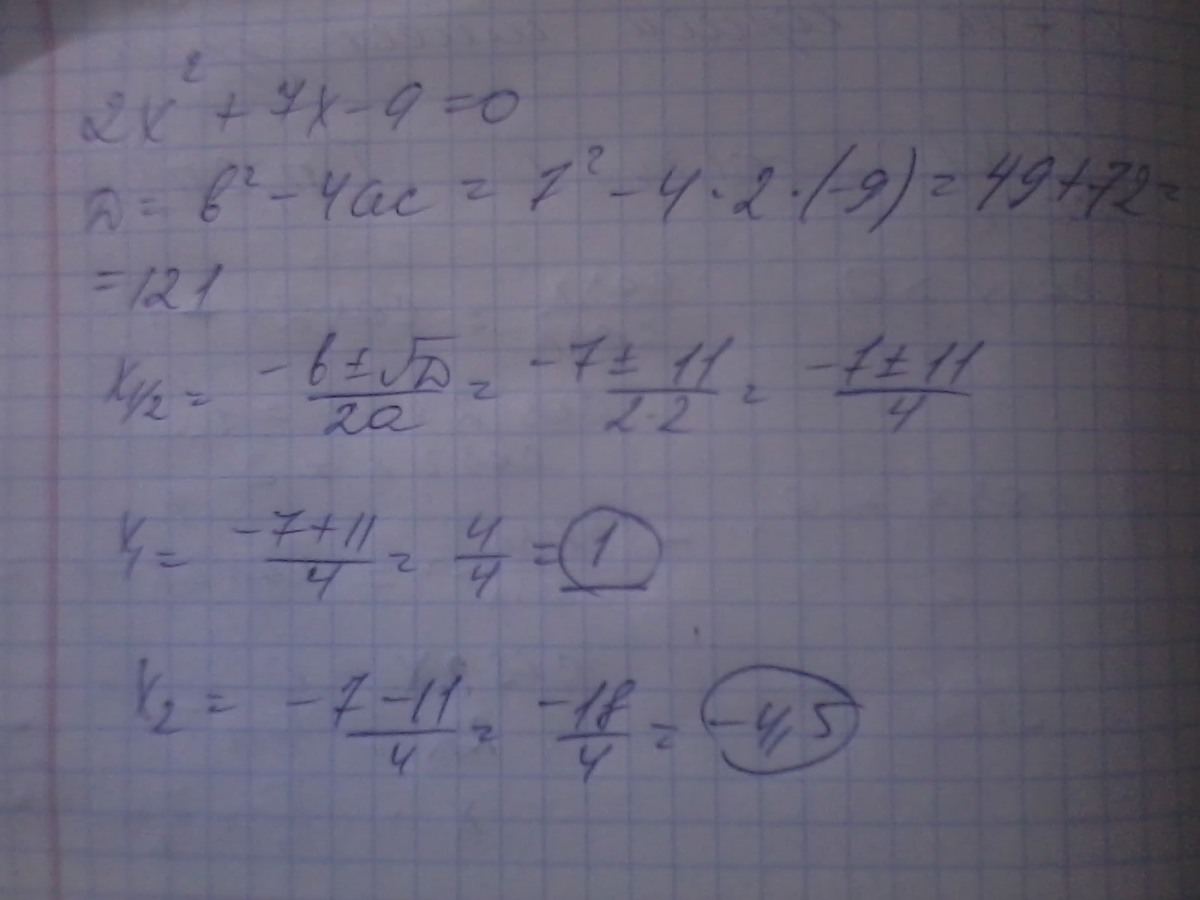 2x² + 7x - 9 = 0
D = b² - 4ac = 7² - 4 · 2 · (-9) = 49 + 72 =
= 121
x₁/₂ = (-b ± √D)/(2a) = (-7 ± 11)/(2·2) = (-7 ± 11)/4
x₁ = (-7 + 11)/4 = 4/4 = 1
x₂ = (-7 - 11)/4 = -18/4 = -4,5